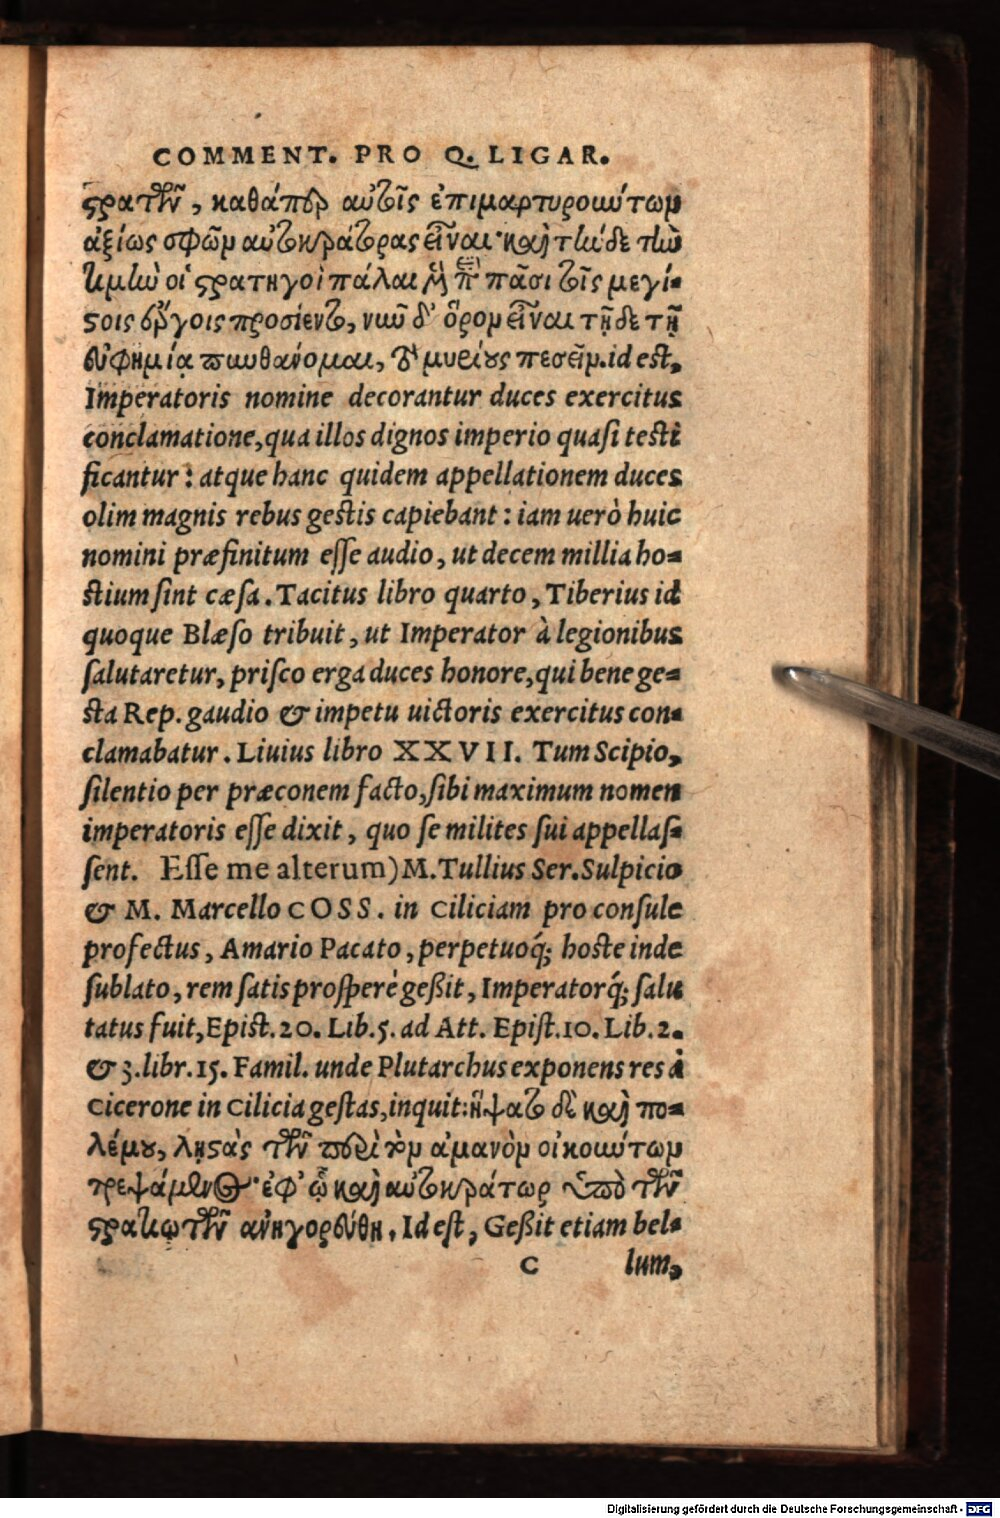 COMMENT. PRO Q. LIGAR.
στρατῶν, καθάπερ αὐτοῖς ἐπιμαρτυρούντων
ἀξίως σφῶν αὐτοκράτορας εἶναι· καὶ τήνδε τὴν
τιμὴν οἱ στρατηγοὶ πάλαι μὲν ἐπὶ πᾶσι τοῖς μεγί-
στοις ἔργοις προσίεντο, νῦν δ' ὅρον εἶναι τῇδε τῇ
εὐφημίᾳ πυνθάνομαι, τὸ μυρίους πεσεῖν. id est,
Imperatoris nomine decorantur duces exercitus
conclamatione, qua illos dignos imperio quasi testi
ficantur : atque hanc quidem appellationem duces
olim magnis rebus gestis capiebant : iam uerò huic
nomini præfinitum esse audio, ut decem millia ho-
stium sint cæsa. Tacitus libro quarto, Tiberius id
quoque Blæso tribuit, ut Imperator à legionibus
salutaretur, prisco erga duces honore, qui bene ge-
sta Rep. gaudio & impetu uictoris exercitus con-
clamabatur. Liuius libro XXVII. Tum Scipio,
silentio per præconem facto, sibi maximum nomen
imperatoris esse dixit, quo se milites sui appellas-
sent. Esse me alterum) M. Tullius Ser. Sulpicio
& M. Marcello COSS. in Ciliciam pro consule
profectus, Amario Pacato, perpetuoq́; hoste inde
sublato, rem satis prosperè geßit, Imperatorq́; salu
tatus fuit, Epist. 20. Lib. 5. ad Att. Epist. 10. Lib. 2.
& 3. libr. 15. Famil. unde Plutarchus exponens res à
Cicerone in Cilicia gestas, inquit: ἥψατο δὲ καὶ πο-
λέμου, λῃστὰς τῶν περὶ τὸν ἀμανὸν οἰκούντων
τρεψάμενος· ἐφ' ᾧ καὶ αὐτοκράτωρ ὑπὸ τῶν
στρατιωτῶν ἀνηγορεύθη. Id est, Geßit etiam bel-
C lum,
Digitalisierung gefördert durch die Deutsche Forschungsgemeinschaft - DFG